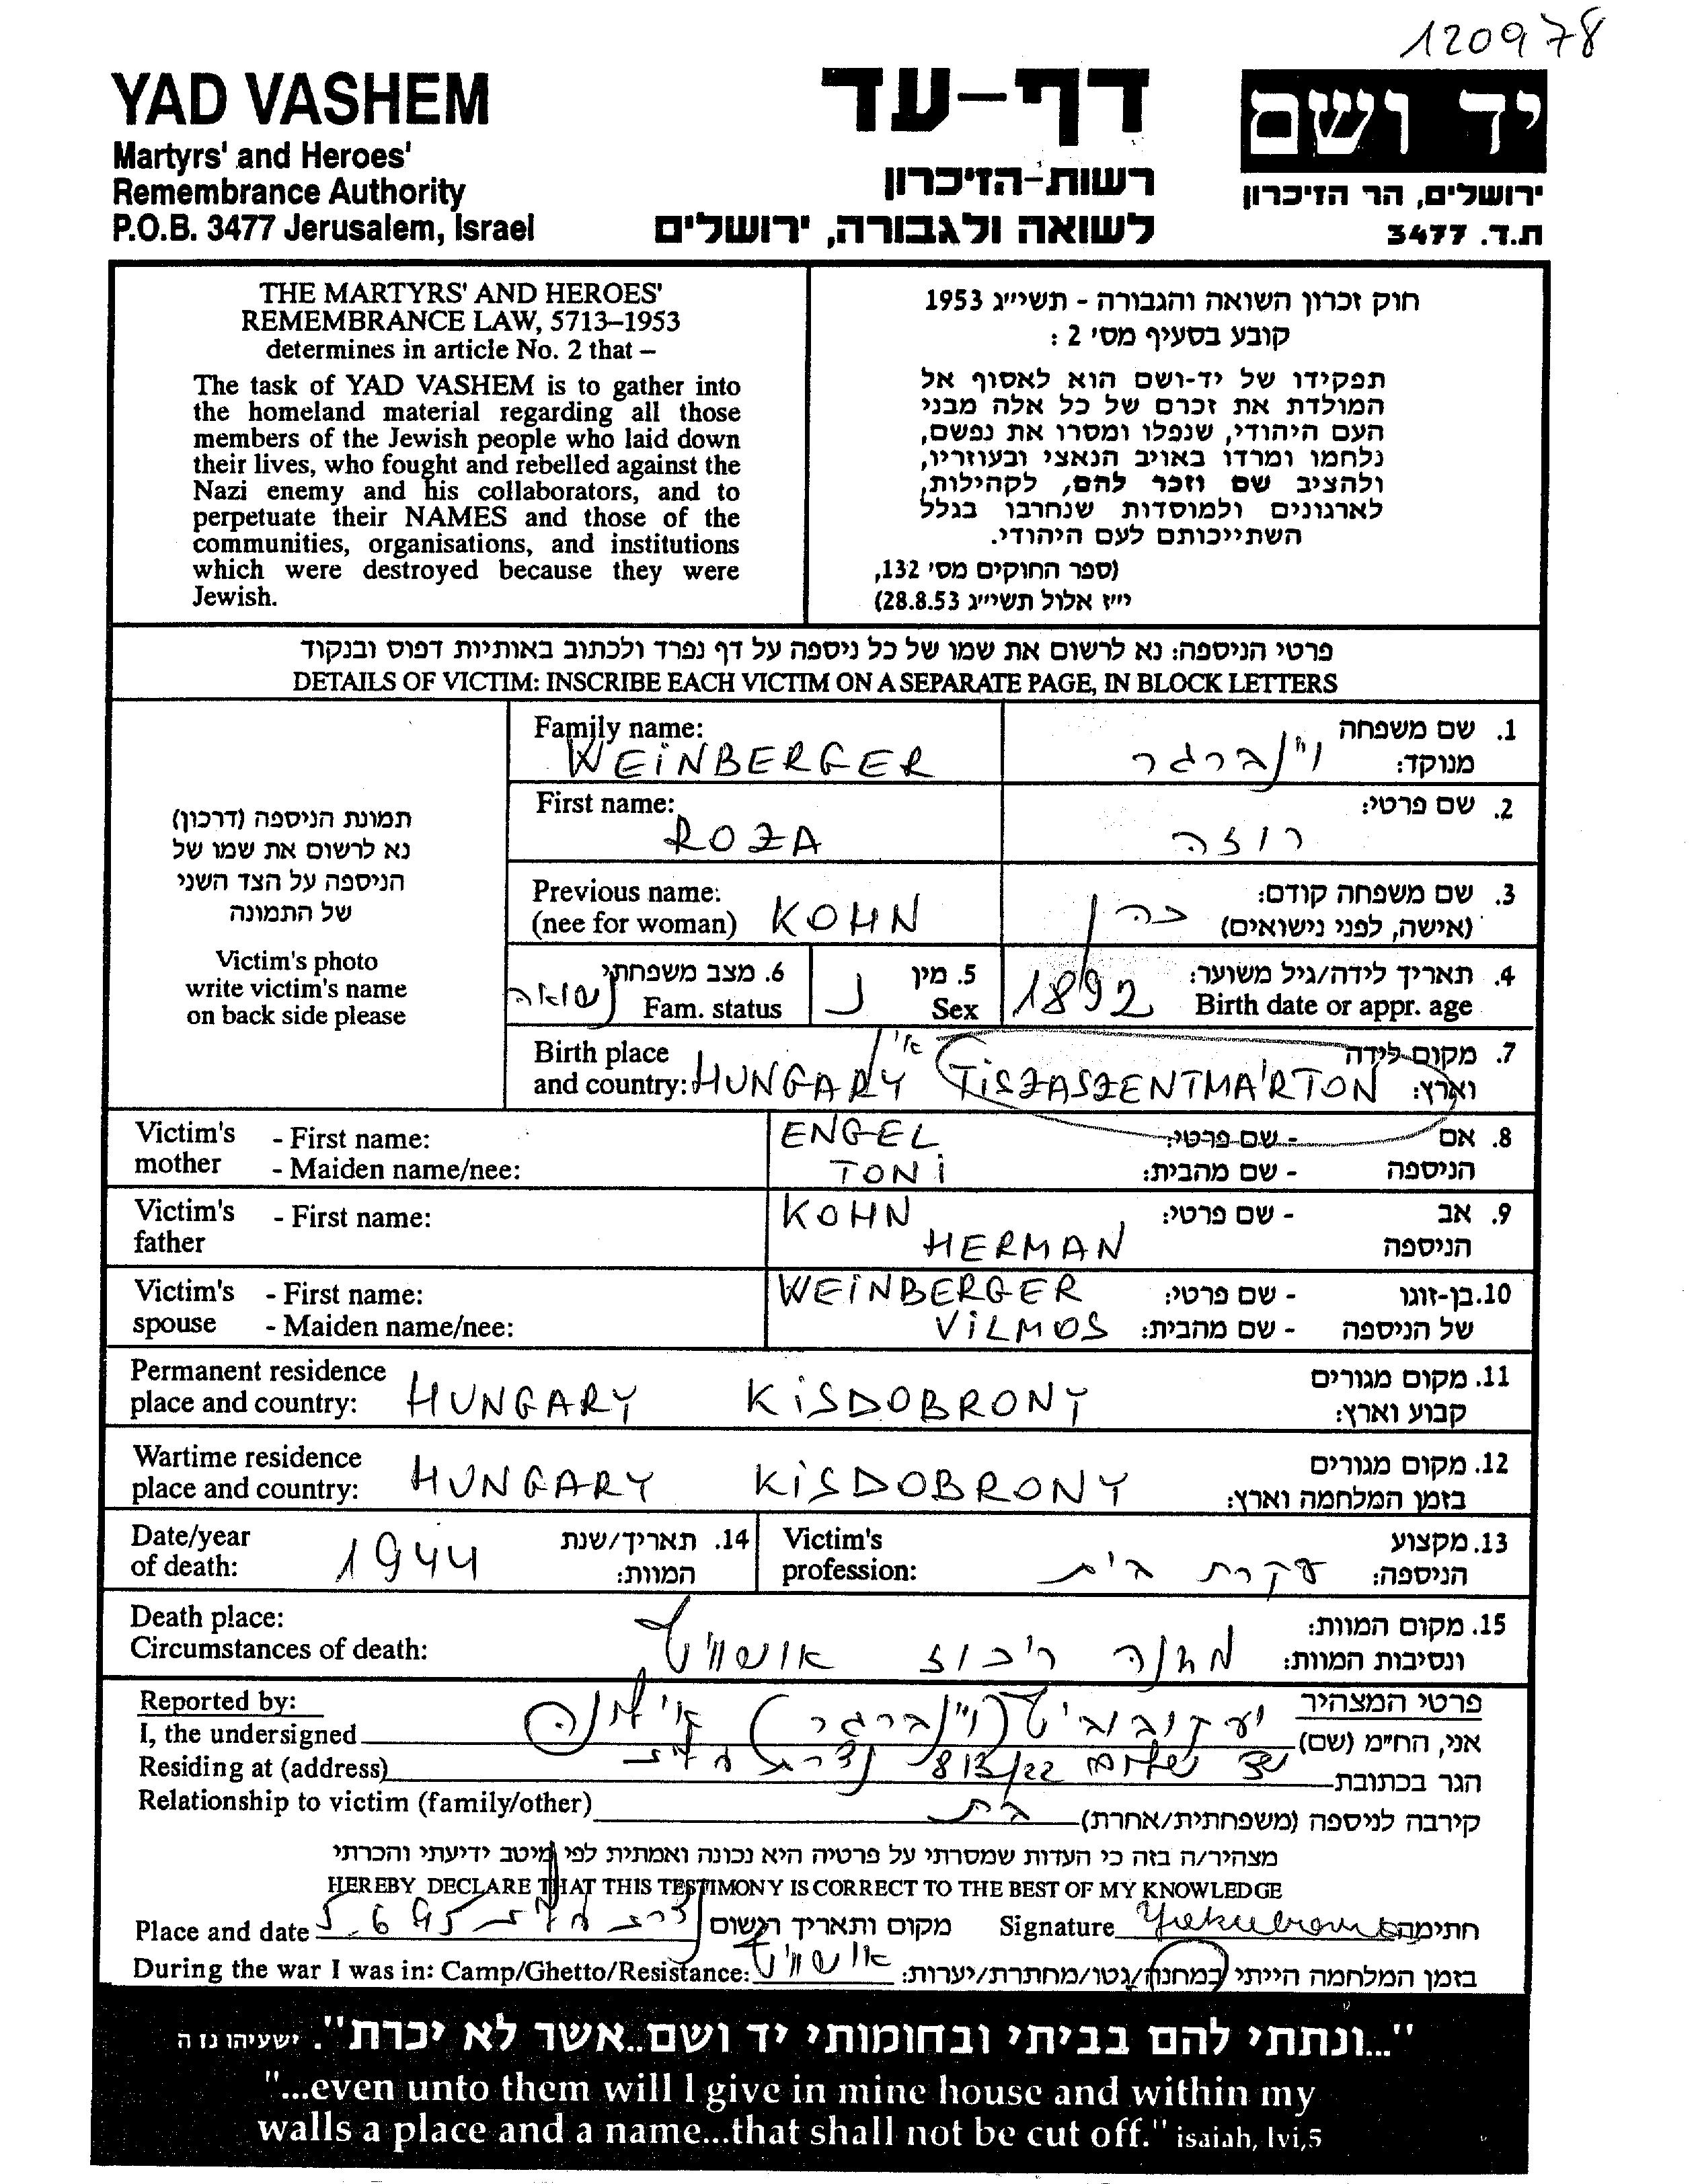 120978
YAD VASHEM
Martyrs' and Heroes'
Remembrance Authority
P.O.B. 3477 Jerusalem, Israel
דף-עד
רשות-הזיכרון
לשואה ולגבורה, ירושלים
יד ושם
ירושלים, הר הזיכרון
ת.ד. 3477
THE MARTYRS' AND HEROES'
REMEMBRANCE LAW, 5713–1953
determines in article No. 2 that –
The task of YAD VASHEM is to gather into
the homeland material regarding all those
members of the Jewish people who laid down
their lives, who fought and rebelled against the
Nazi enemy and his collaborators, and to
perpetuate their NAMES and those of the
communities, organisations, and institutions
which were destroyed because they were
Jewish.
חוק זכרון השואה והגבורה - תשי״ג 1953
קובע בסעיף מס׳ 2 :
תפקידו של יד-ושם הוא לאסוף אל
המולדת את זכרם של כל אלה מבני
העם היהודי, שנפלו ומסרו את נפשם,
נלחמו ומרדו באויב הנאצי ובעוזריו,
ולהציב שם וזכר להם, לקהילות,
לארגונים ולמוסדות שנחרבו בגלל
השתייכותם לעם היהודי.
(ספר החוקים מס׳ 132,
י״ז אלול תשי״ג 28.8.53)
פרטי הניספה: נא לרשום את שמו של כל ניספה על דף נפרד ולכתוב באותיות דפוס ובנקוד
DETAILS OF VICTIM: INSCRIBE EACH VICTIM ON A SEPARATE PAGE, IN BLOCK LETTERS
תמונת הניספה (דרכון)
נא לרשום את שמו של
הניספה על הצד השני
של התמונה
Victim's photo
write victim's name
on back side please
Family name: WEINBERGER
1. שם משפחה מנוקד: ויינברגר
First name: ROZA
2. שם פרטי: רוזה
Previous name: (nee for woman) KOHN
3. שם משפחה קודם: (אישה, לפני נישואים) כהן
6. מצב משפחתי Fam. status נשואה
5. מין Sex נ
4. תאריך לידה/גיל משוער: Birth date or appr. age 1892
Birth place and country: HUNGARY TISZASZENTMÁRTON
7. מקום לידה וארץ:
Victim's mother - First name: ENGEL - שם פרטי: 8. אם
- Maiden name/nee: TONI - שם מהבית: הניספה
Victim's father - First name: KOHN HERMAN - שם פרטי: 9. אב הניספה
Victim's spouse - First name: WEINBERGER - שם פרטי: 10. בן-זוגו
- Maiden name/nee: VILMOS - שם מהבית: של הניספה
Permanent residence place and country: HUNGARY KISDOBRONY
11. מקום מגורים קבוע וארץ:
Wartime residence place and country: HUNGARY KISDOBRONY
12. מקום מגורים בזמן המלחמה וארץ:
Date/year of death: 1944 14. תאריך/שנת המוות:
Victim's profession: עקרת בית 13. מקצוע הניספה:
Death place:
Circumstances of death:
15. מקום המוות: ונסיבות המוות: מחנה ריכוז אושוויץ
Reported by: פרטי המצהיר
I, the undersigned אני, החי״מ (שם) יעקובוביץ (ויינברגר)
Residing at (address) הגר בכתובת 813/22
Relationship to victim (family/other) קירבה לניספה (משפחתית/אחרת) בת
מצהיר/ה בזה כי העדות שמסרתי על פרטיה היא נכונה ואמתית לפי מיטב ידיעתי והכרתי
HEREBY DECLARE THAT THIS TESTIMONY IS CORRECT TO THE BEST OF MY KNOWLEDGE
Place and date 5.6.95 מקום ותאריך הרשום Signature חתימה
During the war I was in: Camp/Ghetto/Resistance: אושוויץ בזמן המלחמה הייתי במחנה/גטו/מחתרת/יערות:
"...ונתתי להם בביתי ובחומותי יד ושם..אשר לא יכרת". ישעיהו נו ה
"...even unto them will I give in mine house and within my
walls a place and a name...that shall not be cut off." isaiah, lvi,5